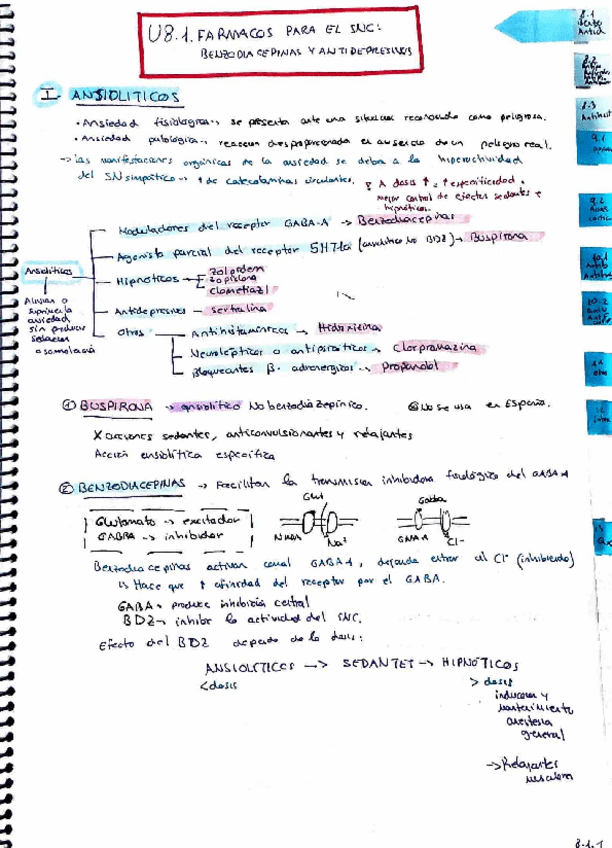 U8.1. FARMACOS PARA EL SNC:
BENZODIACEPINAS Y ANTIDEPRESIVOS
I. ANSIOLITICOS
• Ansiedad fisiologica → se presenta ante una situacion reconocida como peligrosa.
• Ansiedad patologica → reaccion desproporcionada en ausencia de un peligro real.
→ las manifestaciones orgánicas de la ansiedad se deba a la hiperactividad
del SN simpatico → ↑ de catecolaminas circulantes.
A dosis ↑ = ↑ especificidad
Mejor control de efectos sedantes e
hipnóticos.
Ansioliticos
Alivian o
suprimen la
ansiedad
sin producir
sedacion
o somnolencia
Moduladores del receptor GABA-A → Benzodiacepinas
Agonista parcial del receptor 5HT1a (ansiolitico No BDZ) → Buspirona
Hipnóticos
zolpidem
zopiclona
clometiazol
Antidepresivos → sertralina
Otros
Antihistaminicos → Hidroxizina
Neurolépticos o antipsicoticos → Clorpromazina
Bloqueantes β-adrenergicos → Propanolol
① BUSPIRONA → ansiolitico No benzodiazepinico. No se usa en España.
X acciones sedantes, anticonvulsionantes y relajantes
Acción ansiolítica especifica
② BENZODIACEPINAS → Facilitan la transmision inhibidora fisiológica del GABA-A
Glutamato → excitador
GABA → inhibidor
Glut
NMDA
Na+
Gaba
GABA-A
Cl-
Benzodiacepinas activan canal GABA-A, dejando entrar al Cl- (inhibiendo)
↳ Hace que ↑ afinidad del receptor por el GABA.
GABA → produce inhibición central
BDZ → inhibir la actividad del SNC.
Efecto del BDZ depende de la dosis:
ANSIOLITICOS → SEDANTES → HIPNÓTICOS
< dosis
> dosis
induccion y
mantenimiento
anestesia
general
→ Relajantes
8.1
8.2
8.3
9.1
9.2
10.1
10.2
8.1.1